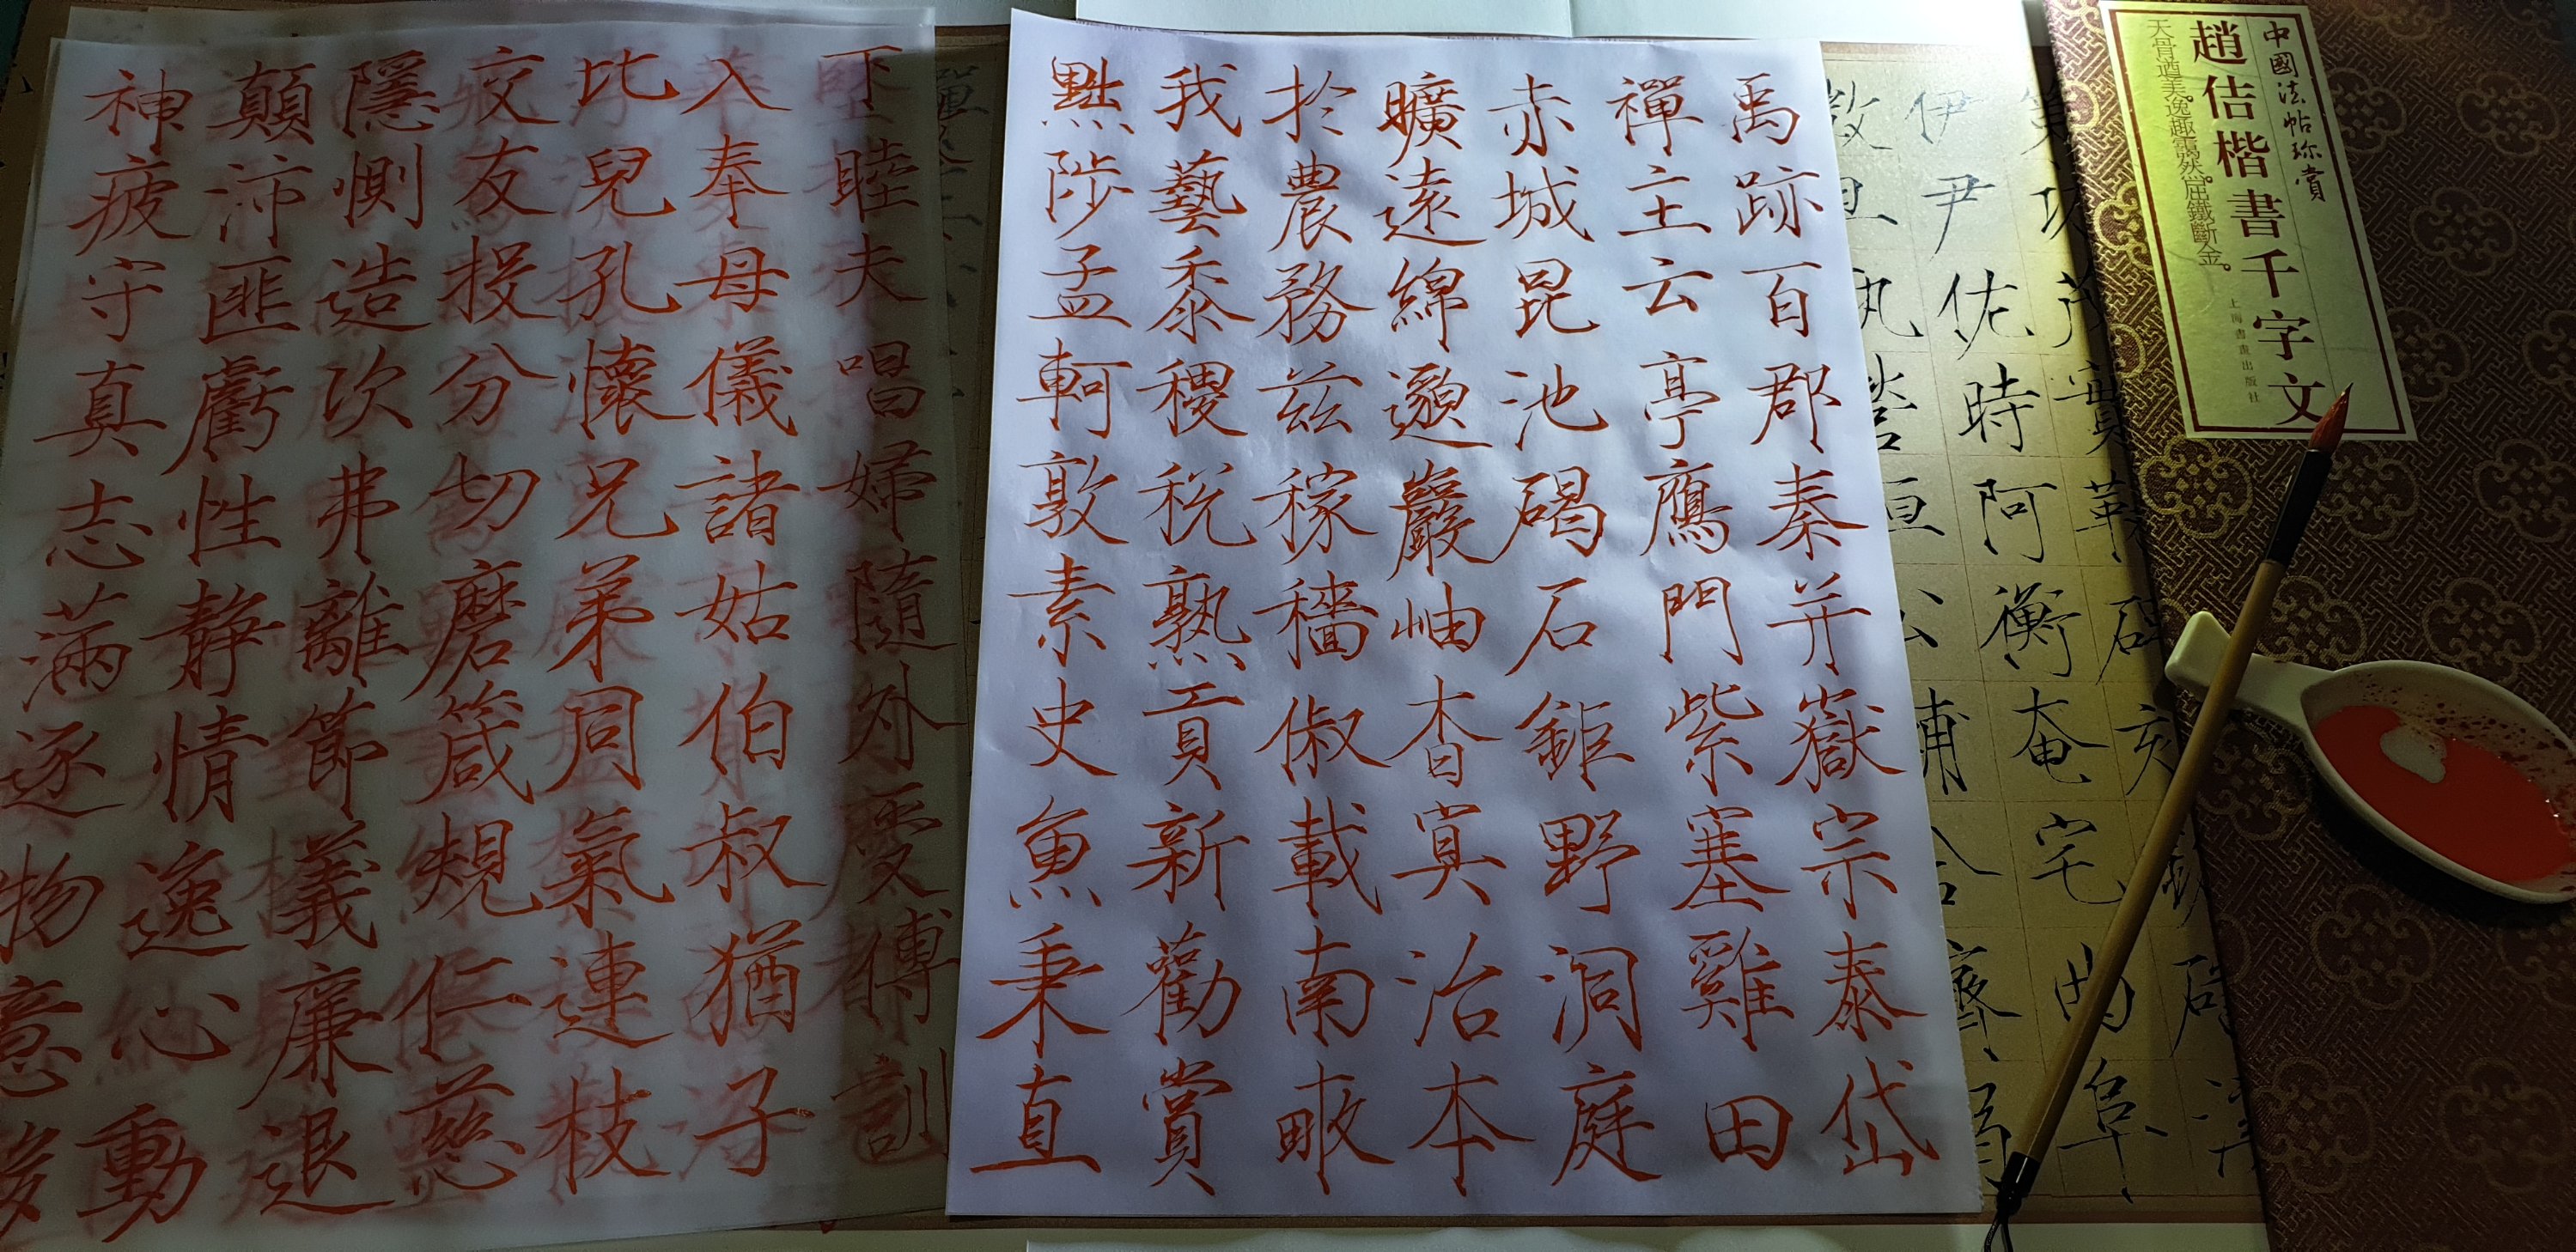 中國法帖珍賞
趙佶楷書千字文
天骨遒美。逸趣靄然。屈鐵斷金。
上海書畫出版社
茂實勒碑
伊尹佐時阿衡奄宅曲阜
旦孰營桓公輔合濟弱
禹跡百郡秦并嶽宗泰岱
禪主云亭鴈門紫塞雞田
赤城昆池碣石鉅野洞庭
曠遠綿邈巖岫杳冥治本
於農務茲稼穡俶載南畝
我藝黍稷稅熟貢新勸賞
黜陟孟軻敦素史魚秉直
下睦夫唱婦隨外受傅訓
入奉母儀諸姑伯叔猶子
比兒孔懷兄弟同氣連枝
交友投分切磨箴規仁慈
隱惻造次弗離節義廉退
顛沛匪虧性靜情逸心動
神疲守真志滿逐物意移